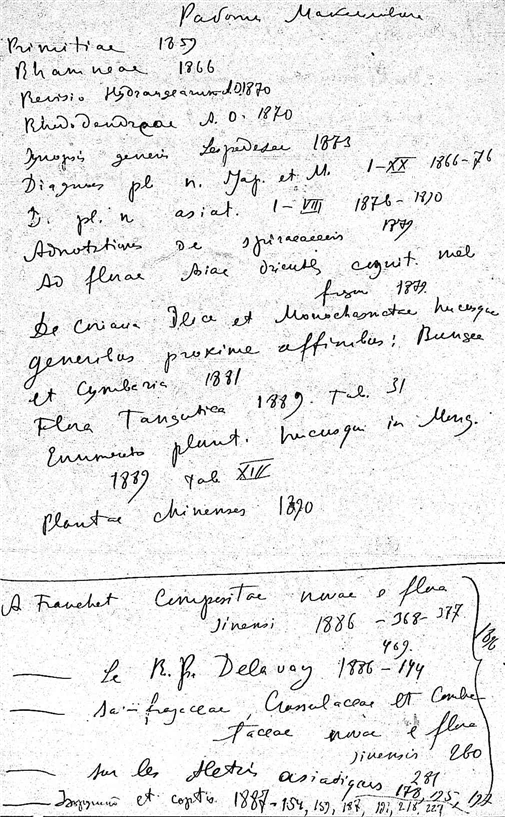 Работы Максимовича
Primitiae 1859
Rhamneae 1866
Revisio Hydrangearum A.O. 1870
Rhododendreae A. O. 1870
Synopsis generis Lespedezae 1873
Diagnoses pl. n. Jap. et M. I-XX 1866-76
D. pl. n asiat. I-VIII 1876-1890
Adnotationes de spiraeaceis 1879
Ad florae Asiae orientalis cognit. mel
1879.
De Coriaria Ilice et Monochasmatae hucusque
generibus proxime affinibus: Bungea
et Cymbaria 1881
Flora Tangutica 1889. Tab. 31
Enumeratio plant. hucusque in Mong.
1889 Tab XIV
Plantae chinenses 1890
A Franchet Compositae novae e flora
sinensi 1886 - 368-377
469.
—— Le R. P. Delavay 1886-194
—— Saxifragaceae, Crassulaceae et Combre-
taceae novae e flora
sinensis 260
—— sur les Aletris asiatiques 281
—— et coptis. 1887-154, 159, 187, 191, 218, 227
178, 195, 197